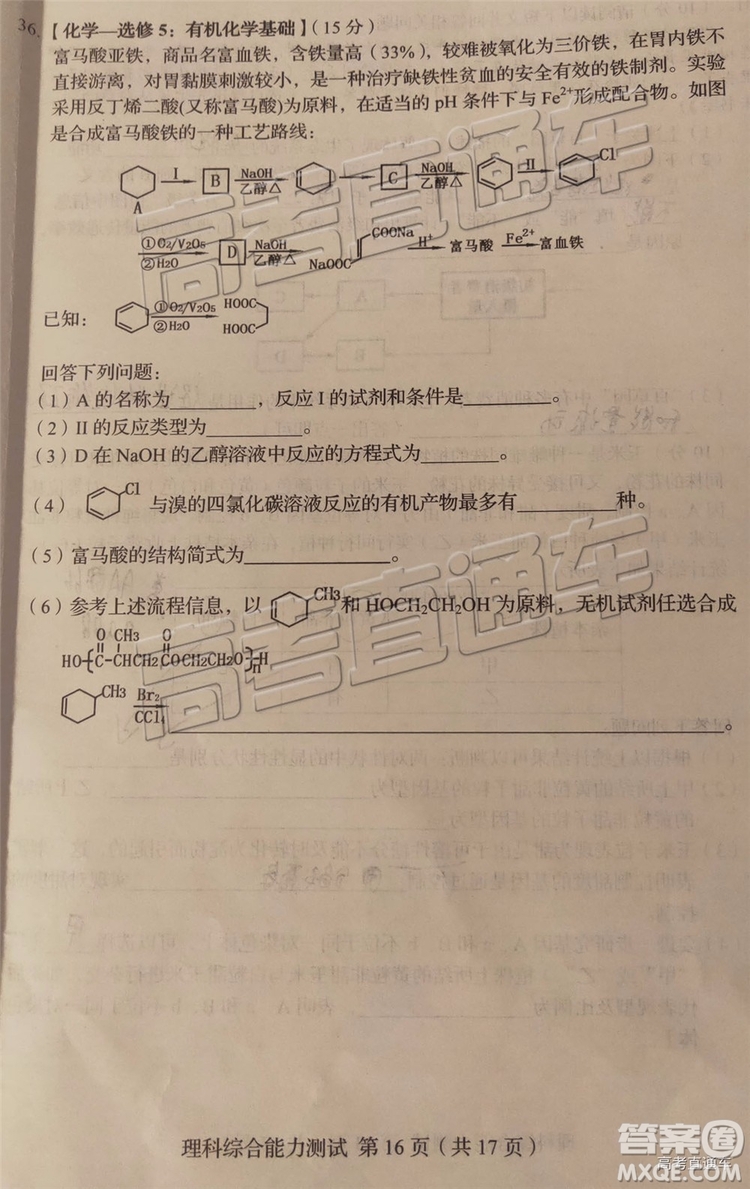 36.【化学—选修 5：有机化学基础】（15 分）
富马酸亚铁，商品名富血铁，含铁量高（33%），较难被氧化为三价铁，在胃内铁不
直接游离，对胃黏膜刺激较小，是一种治疗缺铁性贫血的安全有效的铁制剂。实验
采用反丁烯二酸(又称富马酸)为原料，在适当的 pH 条件下与 Fe²⁺形成配合物。如图
是合成富马酸铁的一种工艺路线：
A I B NaOH 乙醇△ C NaOH 乙醇△ II Cl
①O₂/V₂O₅ ②H₂O D NaOH 乙醇△ NaOOC COONa H⁺ 富马酸 Fe²⁺ 富血铁
已知： ①O₂/V₂O₅ ②H₂O HOOC HOOC
回答下列问题：
（1）A 的名称为________，反应 I 的试剂和条件是________。
（2）II 的反应类型为________。
（3）D 在 NaOH 的乙醇溶液中反应的方程式为________。
（4） Cl 与溴的四氯化碳溶液反应的有机产物最多有________种。
（5）富马酸的结构简式为________。
（6）参考上述流程信息，以 CH₃ 和 HOCH₂CH₂OH 为原料，无机试剂任选合成
O CH₃ O
HO C-CHCH₂COCH₂CH₂O H
CH₃ Br₂ CCl₄ ________
理科综合能力测试 第 16 页（共 17 页）
高考直通车
答案卷
MXQE.COM
高考直通车